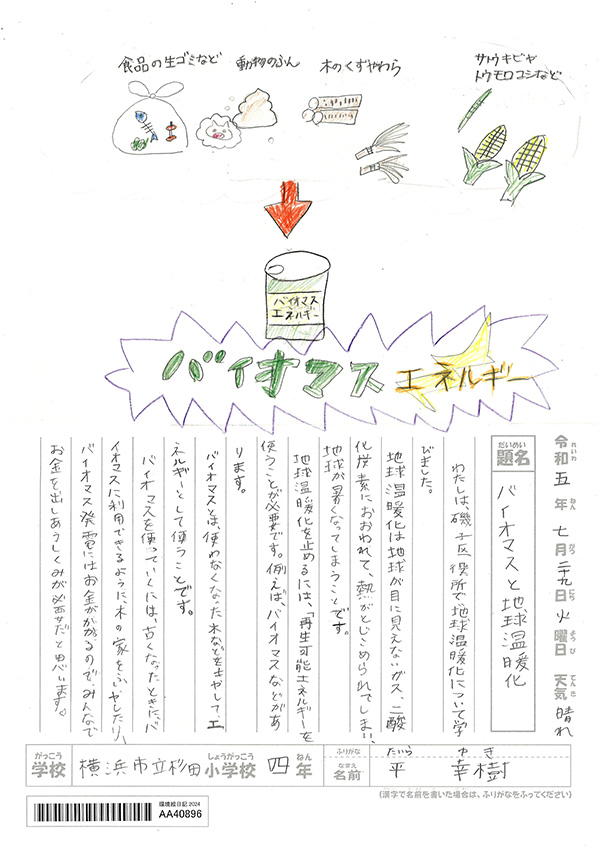 食品の生ゴミなど
動物のふん
木のくずやわら
サトウキビや
トウモロコシなど
バイオマス
エネルギー
バイオマスエネルギー
令和五年七月二十九日火曜日 天気 晴れ
れいわ ねん がつ にち ようび てんき
だいめい
題名
バイオマスと地球温暖化
わたしは、磯子区役所で地球温暖化について学
びました。
地球温暖化は地球が目に見えないガス、二酸
化炭素におおわれて、熱がとじこめられてしまい、
地球が暑くなってしまうことです。
地球温暖化を止めるには、「再生可能エネルギーを
使うことが必要です。例えば、バイオマスなどがあ
ります。
バイオマスとは、使わなくなった木などをもやしてエ
ネルギーとして使うことです。
バイオマスを使っていくには、古くなったときに、バ
イオマスに利用できるように木の家をふやしたり、
バイオマス発電にはお金がかかるので、みんなで
お金を出しあうしくみが必要だと思います。
がっこう
学校
横浜市立杉田
しょうがっこう
小学校
四
ねん
年
ふりがな
たいら ゆき
なまえ
名前
平 幸樹
(漢字で名前を書いた場合は、ふりがなをふってください)
環境絵日記2024
AA40896